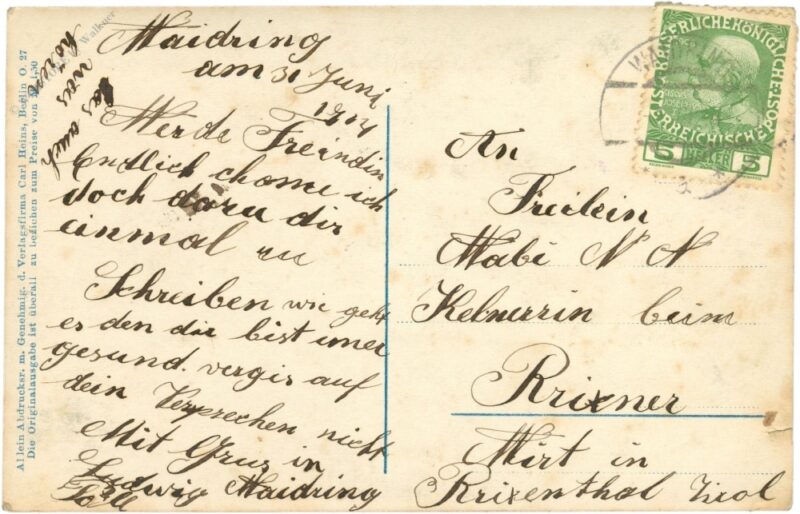 Maidring
am 31 Juni
1914
Werde Freindin
Endlich chome ich
doch daru dir
einmal zu
Schreiben wie geht
es den dir bist imer
gesund. vergis auf
dein Versprechen nicht
Mit Grus in
Ludwig Maidring
las auch
was
hören
An
Freilein
Mabi N N
Kelnerrin beim
Krixner
Wirt in
Krixenthal Tirol
KAISERLICHE KÖNIGLICHE
ÖSTERREICHISCHE POST
5 HELLER 5
Allein Abdrucksr. m. Genehmig. d. Verlagsfirma Carl Heins, Berlin O. 27
Die Originalausgabe ist überall zu beziehen zum Preise von M 1,50